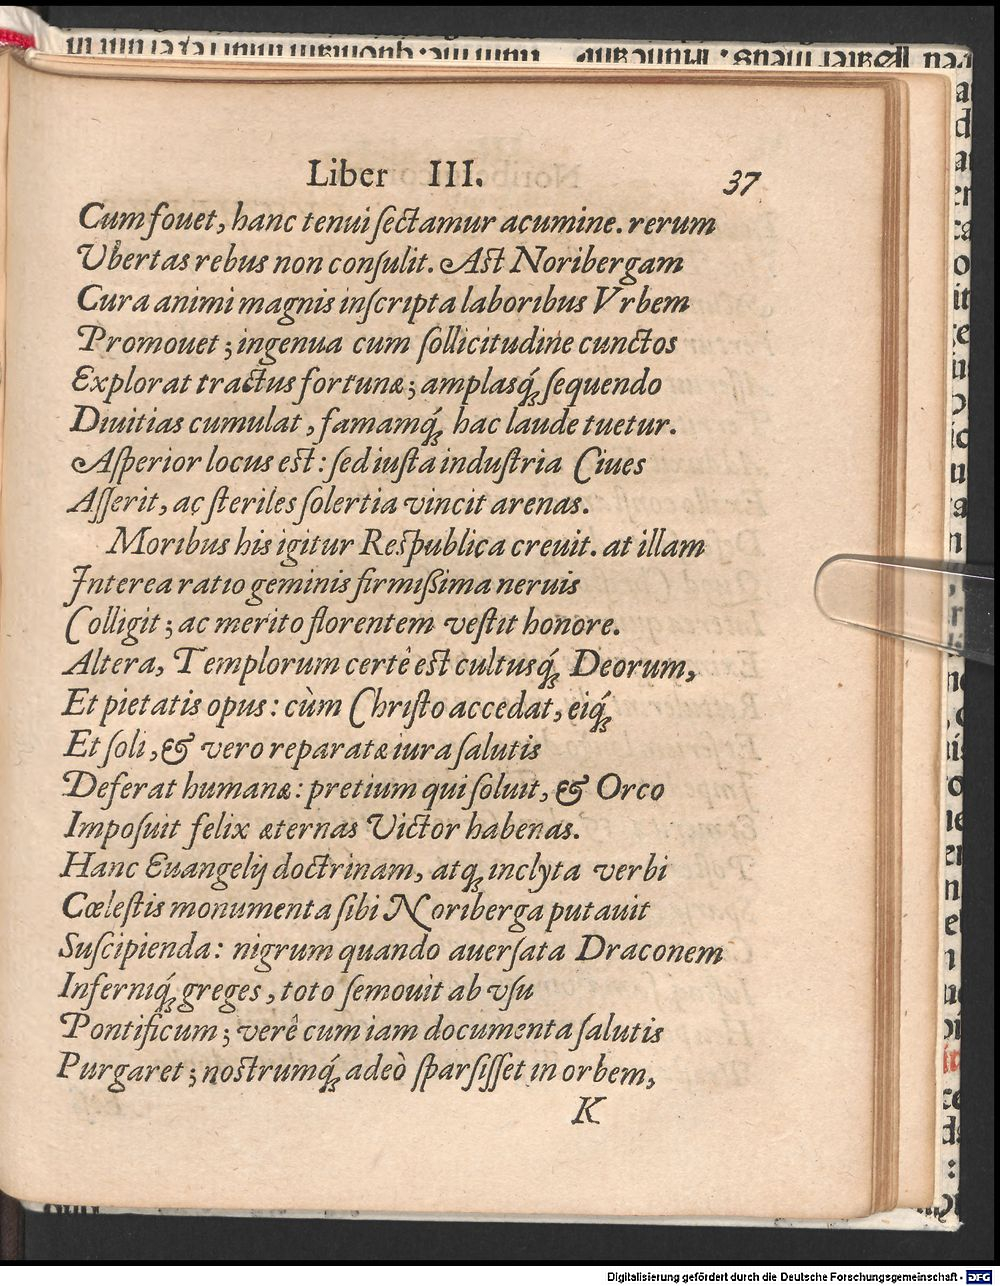 Liber III. 37
Cum fouet, hanc tenui sectamur acumine. rerum
Vbertas rebus non consulit. Ast Noribergam
Cura animi magnis inscripta laboribus Vrbem
Promouet; ingenua cum sollicitudine cunctos
Explorat tractus fortunæ; amplasq́; sequendo
Diuitias cumulat, famamq́; hac laude tuetur.
Asperior locus est: sed iusta industria Ciues
Asserit, ac steriles solertia vincit arenas.
Moribus his igitur Respublica creuit. at illam
Interea ratio geminis firmißima neruis
Colligit; ac merito florentem vestit honore.
Altera, Templorum certê est cultusq́; Deorum,
Et pietatis opus: cùm Christo accedat, eiq́;
Et soli, & vero reparatæ iura salutis
Deferat humanæ: pretium qui soluit, & Orco
Imposuit felix æternas Victor habenas.
Hanc Euangelij doctrinam, atq; inclyta verbi
Cœlestis monumenta sibi Noriberga putauit
Suscipienda: nigrum quando auersata Draconem
Inferniq́; greges, toto semouit ab vsu
Pontificum; verê cum iam documenta salutis
Purgaret; nostrumq́; adeò sparsisset in orbem,
K
Digitalisierung gefördert durch die Deutsche Forschungsgemeinschaft - DFG